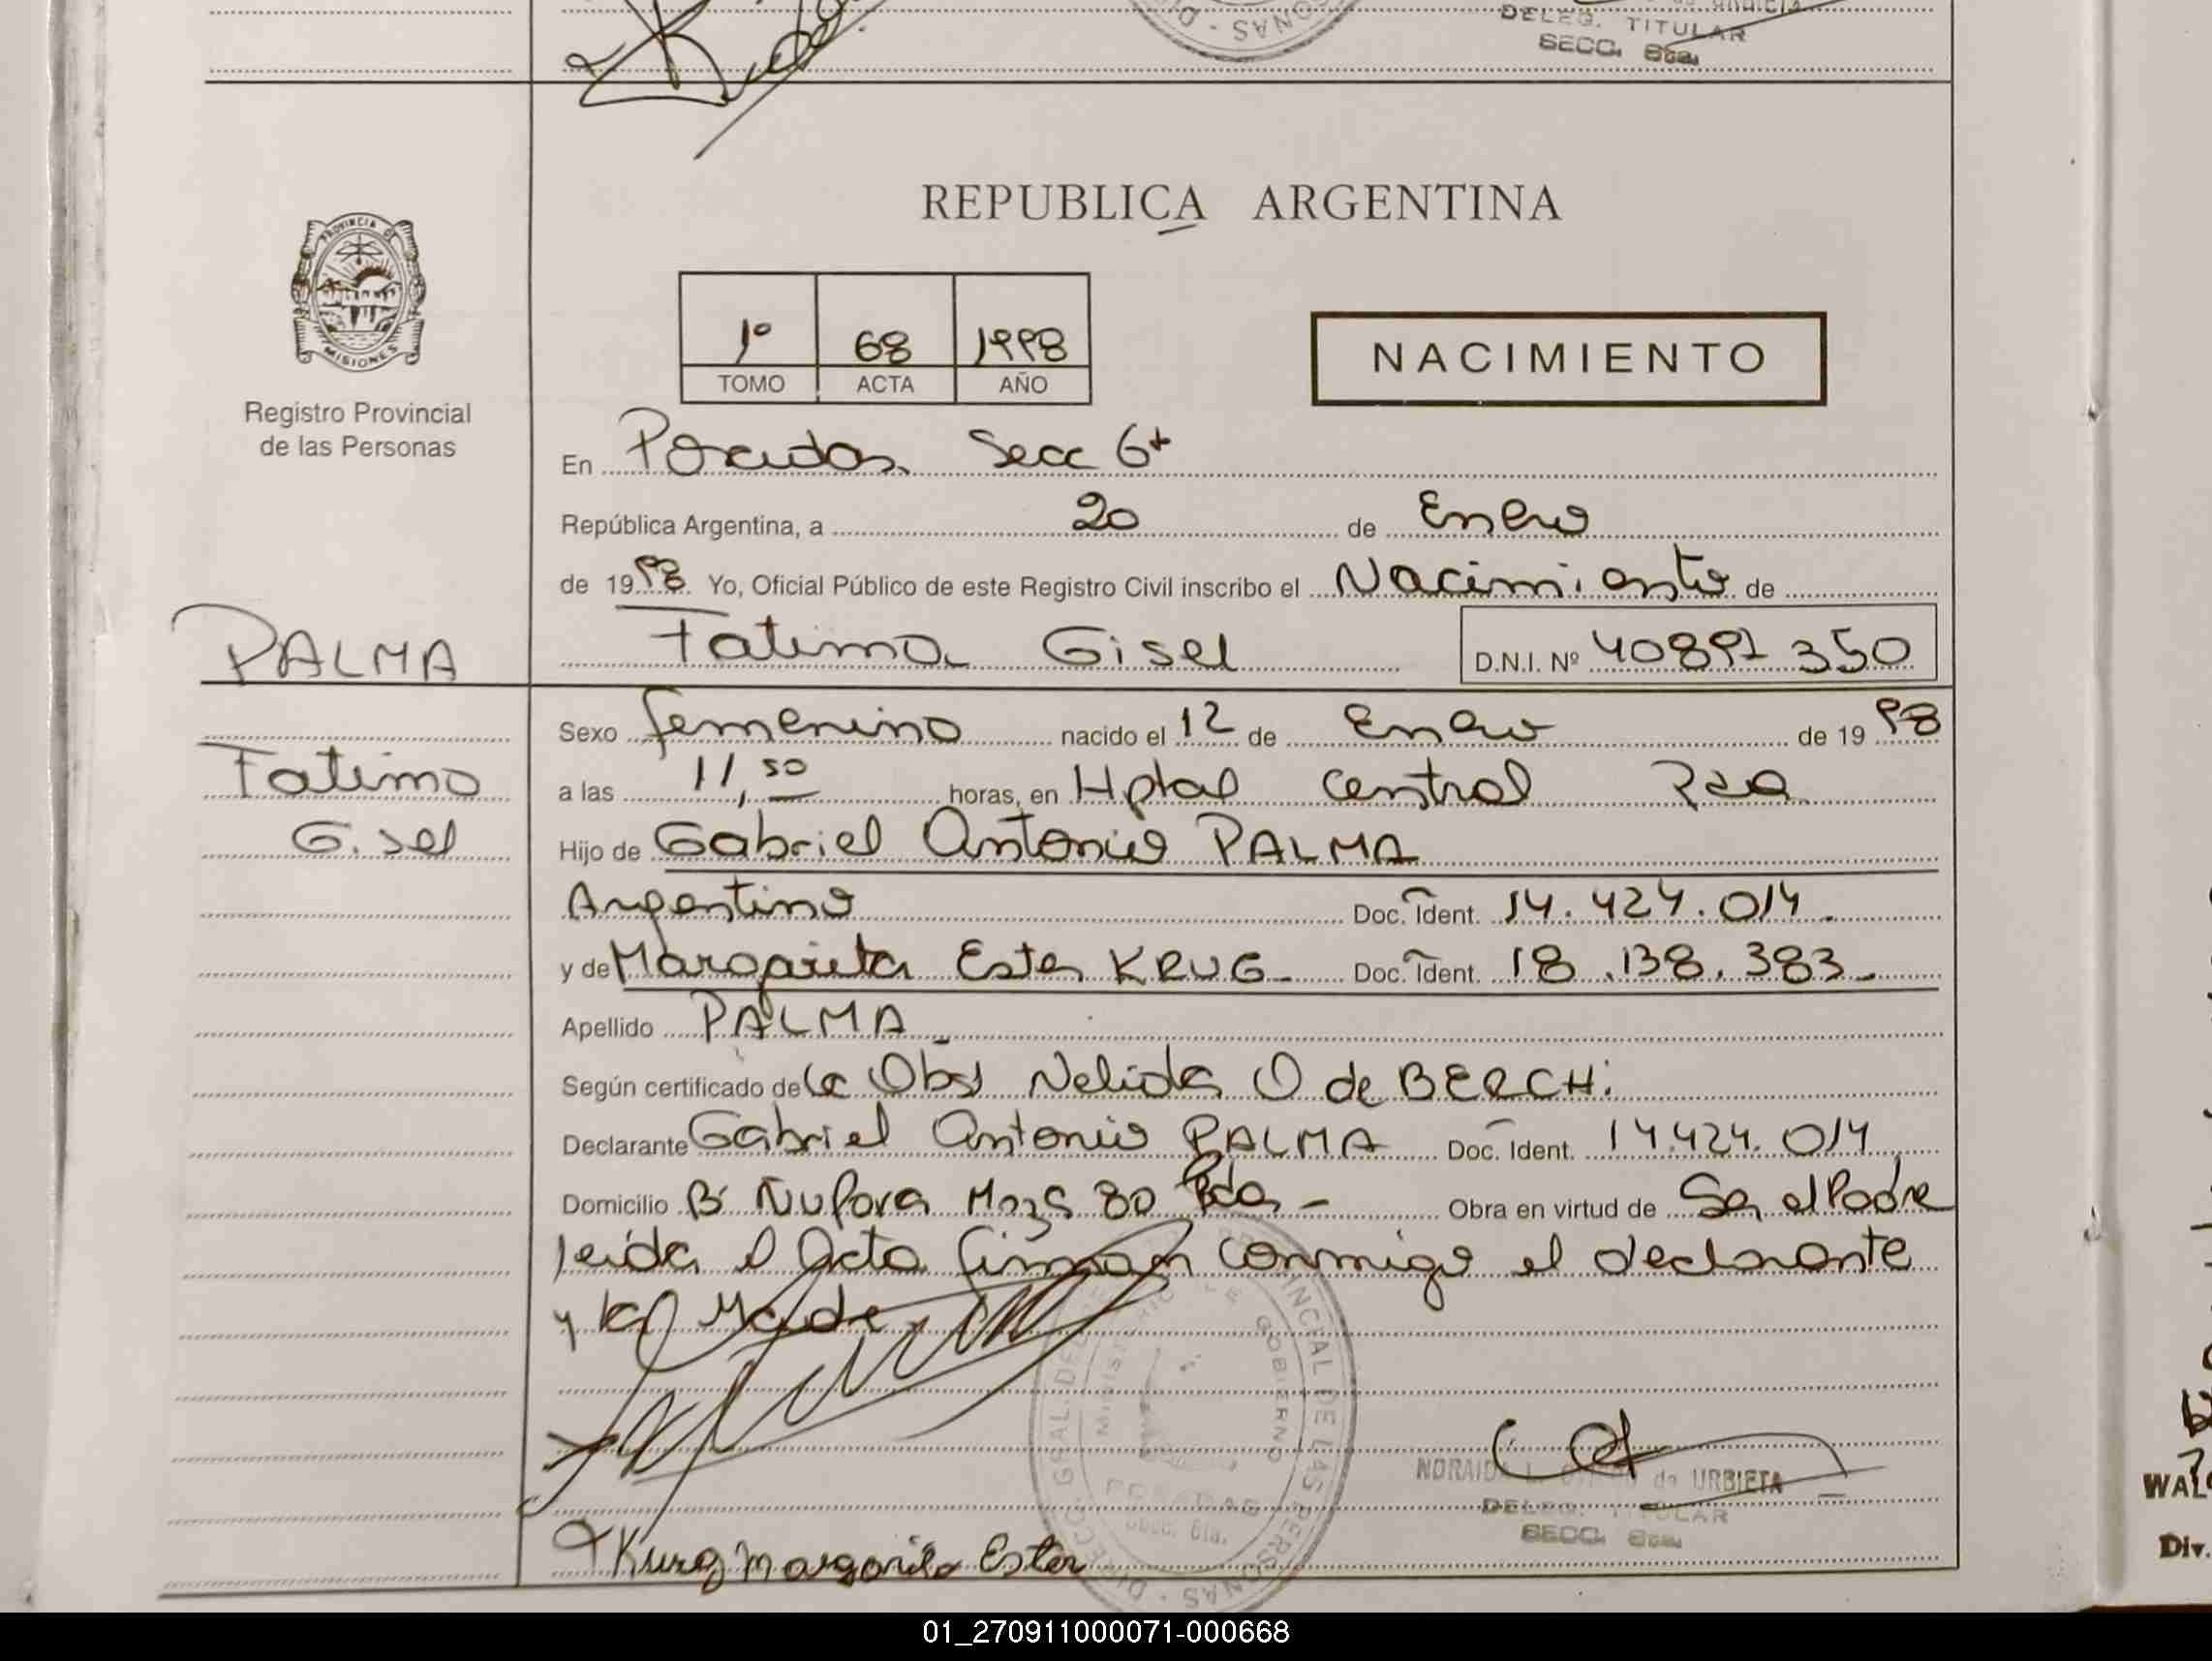 DELEG. TITULAR
SECC. 6ta.
REPUBLICA ARGENTINA
PROVINCIA DE
MISIONES
1º 68 1998
TOMO ACTA AÑO
NACIMIENTO
Registro Provincial
de las Personas
En Posadas Secc 6ta
República Argentina, a 20 de Enero
de 1998 Yo, Oficial Público de este Registro Civil inscribo el Nacimiento de
PALMA
Fatima Gisel D.N.I. Nº 40897 350
Sexo femenino nacido el 12 de Enero de 1998
Fatima
a las 11,50 horas, en Hptal Central Pdas
Gisel
Hijo de Gabriel Antonio PALMA
Argentino Doc. Ident. 14.424.014.
y de Margarita Ester KRUG Doc. Ident. 18.138.383
Apellido PALMA
Según certificado de la Obst Nelida O de BERCHI
Declarante Gabriel Antonio PALMA Doc. Ident. 14.424.014
Domicilio Bº Ñu Pora Mz 80 Pdas - Obra en virtud de Ser el Padre
leida el Acta firman conmigo el declarante
y la Madre
MINISTERIO DE GOBIERNO
DIRECC. GRAL. DEL PROVINCIAL DE LAS PERSONAS
Secc. 6ta.
NORAIDA de URBIETA
DELEG. TITULAR
SECC. 6ta.
Krug Margarita Ester
WAL
Div.
01_270911000071-000668